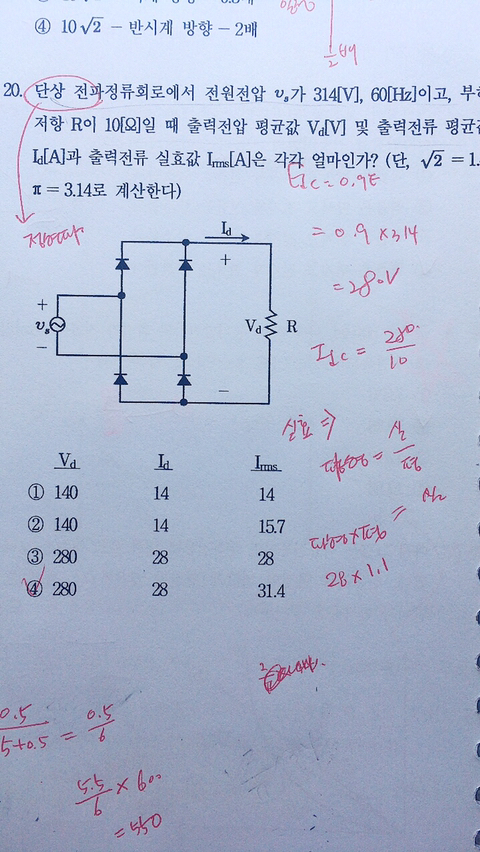 ④ 10√2 - 반시계 방향 - 2배
1/2배
20. 단상 전파정류회로에서 전원전압 υs가 314[V], 60[Hz]이고, 부하
저항 R이 10[Ω]일 때 출력전압 평균값 Vd[V] 및 출력전류 평균값
Id[A]과 출력전류 실효값 Irms[A]은 각각 얼마인가? (단, √2 = 1.
π = 3.14로 계산한다)
Edc = 0.9E
= 0.9 × 314
= 280V
Idc = 280/10
Id
+
+
υs
Vd
R
−
−
실효 ⇒
파형률 = 실/평
= 실
파형×평
28 × 1.1
Vd Id Irms
① 140 14 14
② 140 14 15.7
③ 280 28 28
④ 280 28 31.4
0.5/5+0.5 = 0.5/6
5.5/6 × 600
= 550